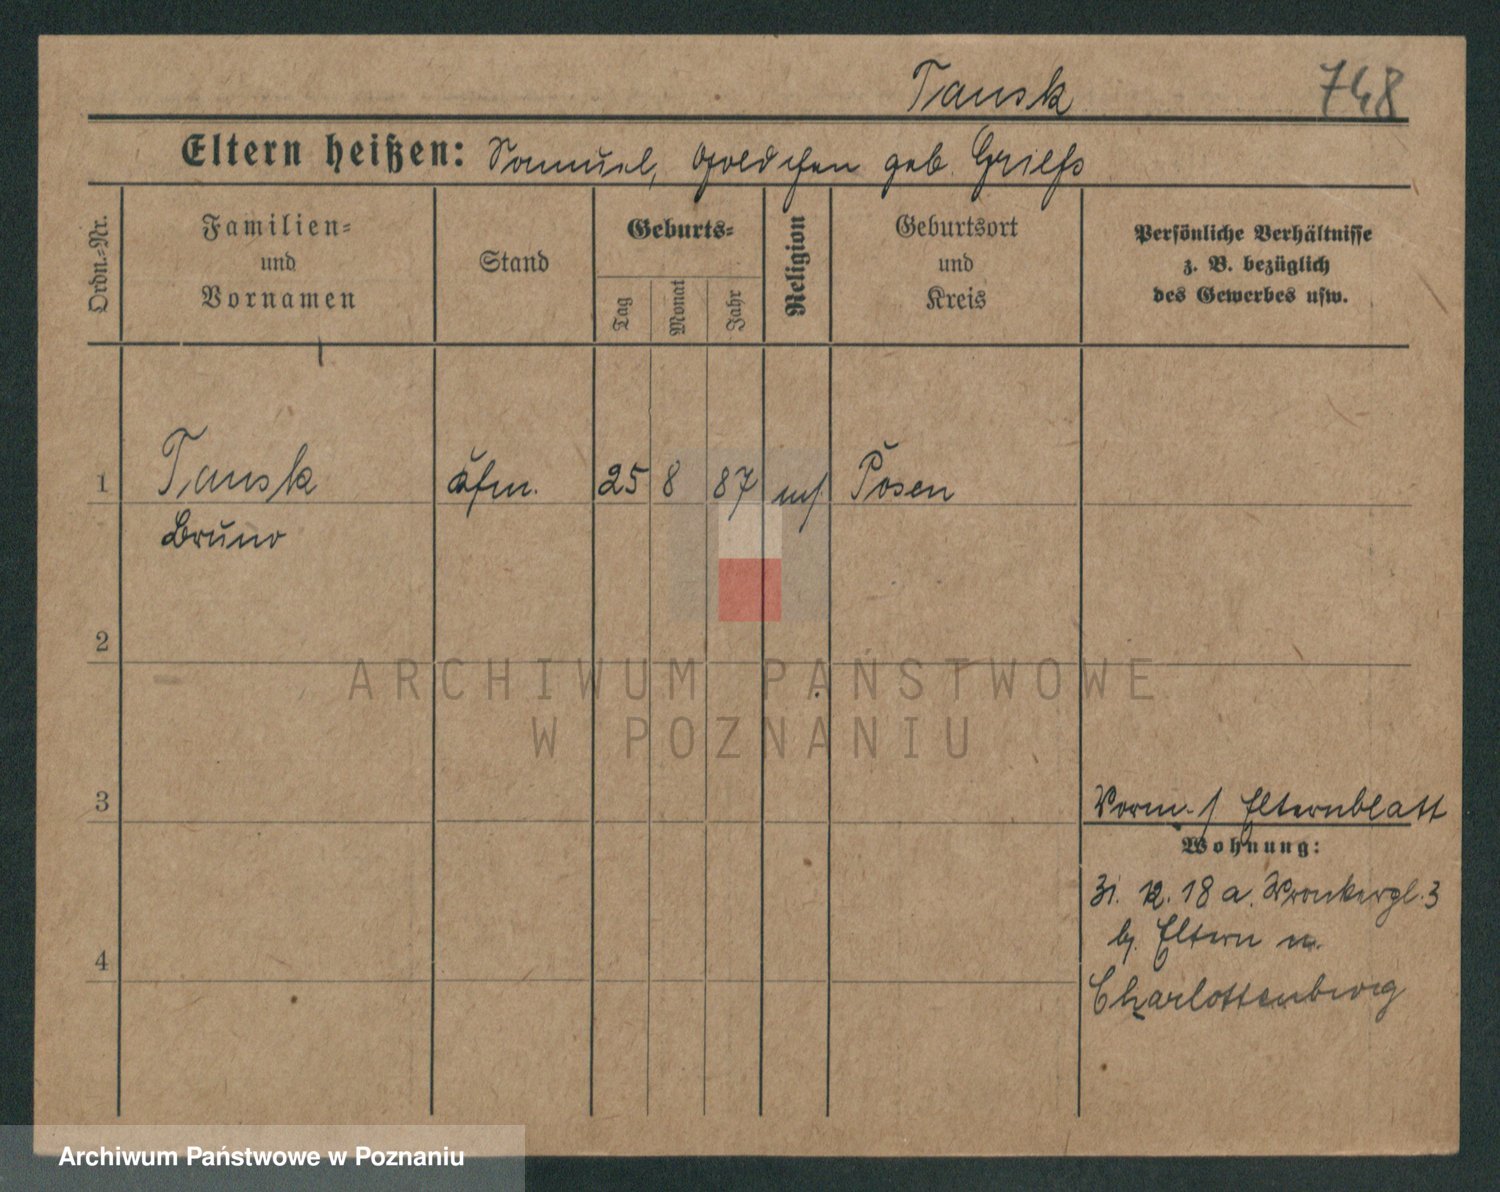 Tansk
748
Eltern heißen: Samuel, Goldchen geb. Grieß
Ordn.-Nr.
Familien-
und
Vornamen
Stand
Geburts-
Tag
Monat
Jahr
Religion
Geburtsort
und
Kreis
Persönliche Verhältnisse
z. B. bezüglich
des Gewerbes usw.
1
Tansk
Bruno
Kfm.
25
8
87
Posen
2
3
4
Vorm. Elternblatt
Wohnung:
31. 12. 18 a. Wronkergl. 3
b. Eltern n.
Charlottenburg
ARCHIWUM PAŃSTWOWE
W POZNANIU
Archiwum Państwowe w Poznaniu